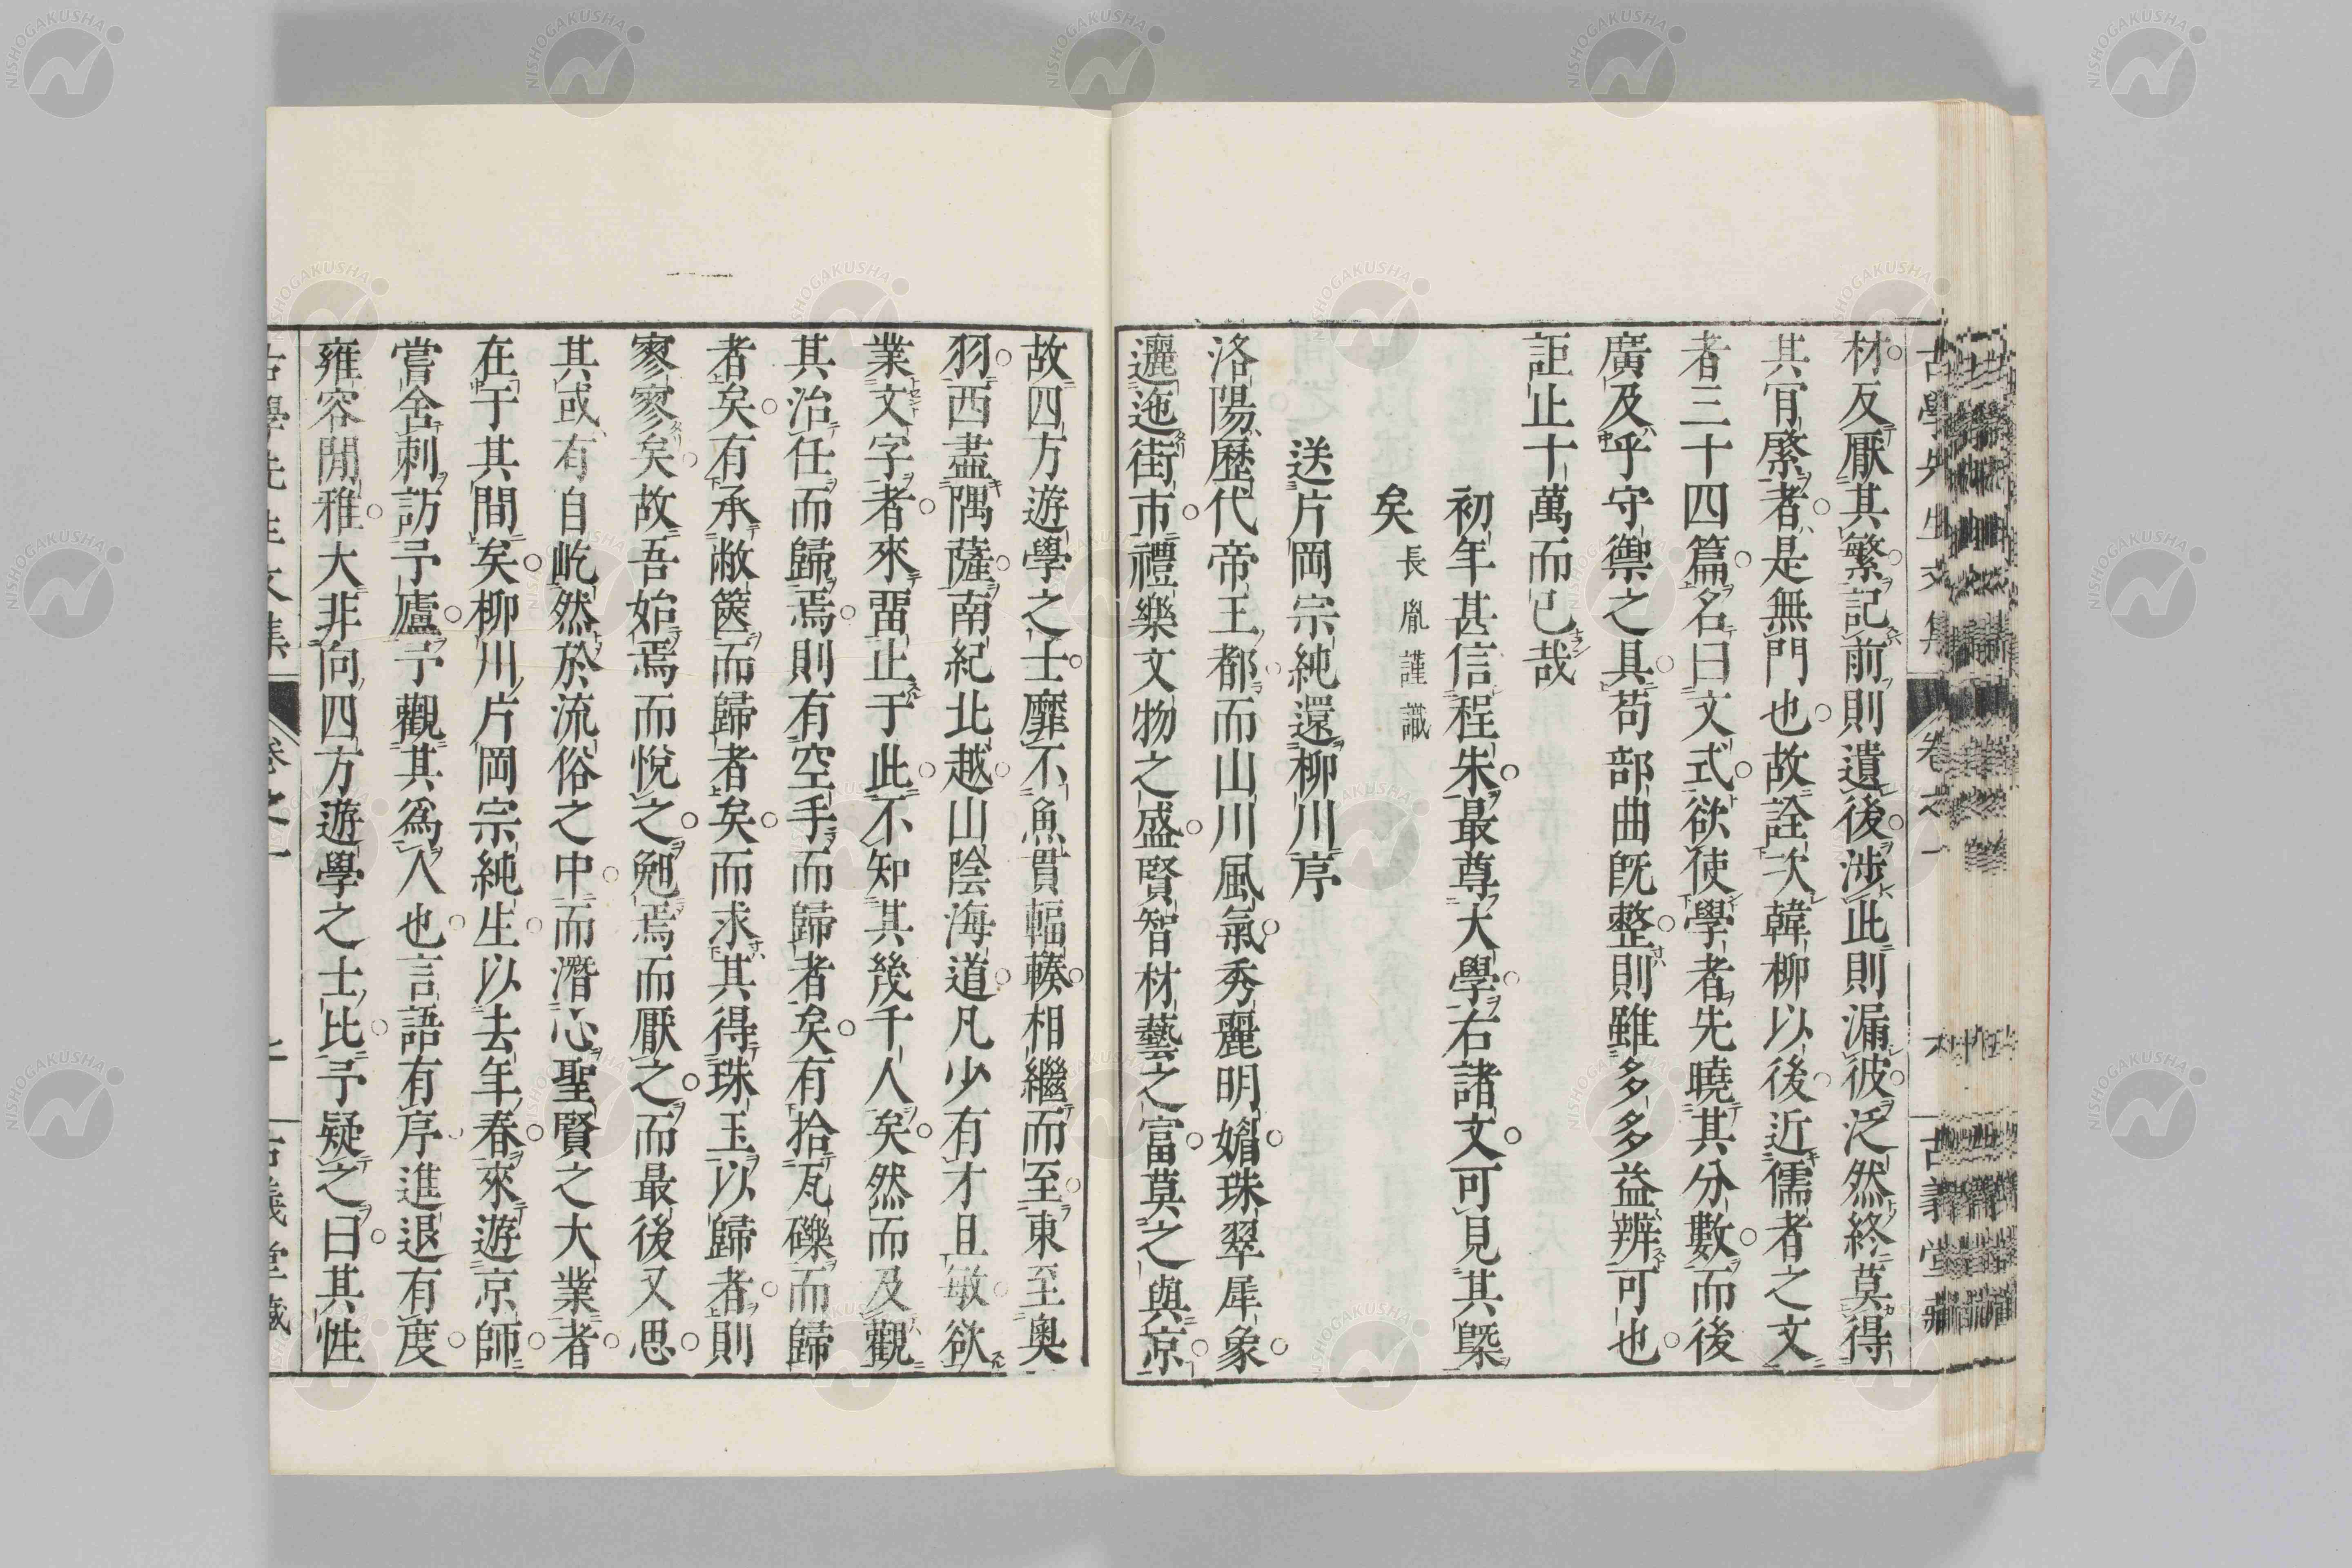 材反厭其繁記前則遺後涉此則漏彼泛然終莫得
其肯綮者是無門也故詮次韓柳以後近儒者之文
者三十四篇名曰文式欲使學者先曉其分數而後
廣及乎守禦之具苟部曲既整則雖多多益辨可也
詎止十萬而已哉
初年甚信程朱最尊大學右諸文可見其槩
矣 長胤謹識
送片岡宗純還柳川序
洛陽歷代帝王都而山川風氣秀麗明媚珠翠犀象
邐迤街市禮樂文物之盛賢智材藝之富莫之與京
故四方遊學之士靡不魚貫輻輳相繼而至東至奧
羽西盡隅薩南紀北越山陰海道凡少有才且敏欲
業文字者來畱止于此不知其幾千人矣然而及觀
其治任而歸焉則有空手而歸者矣有拾瓦礫而歸
者矣有承敝篋而歸者矣而求其得珠玉以歸者則
寥寥矣故吾始焉而悅之勉焉而厭之而最後又思
其或有自屹然於流俗之中而潛心聖賢之大業者
在于其間矣柳川片岡宗純生以去年春來遊京師
嘗舍刺訪予廬予觀其爲人也言語有序進退有度
雍容閒雅大非向四方遊學之士比予疑之曰其性
古學先生文集 卷之一 古義堂藏